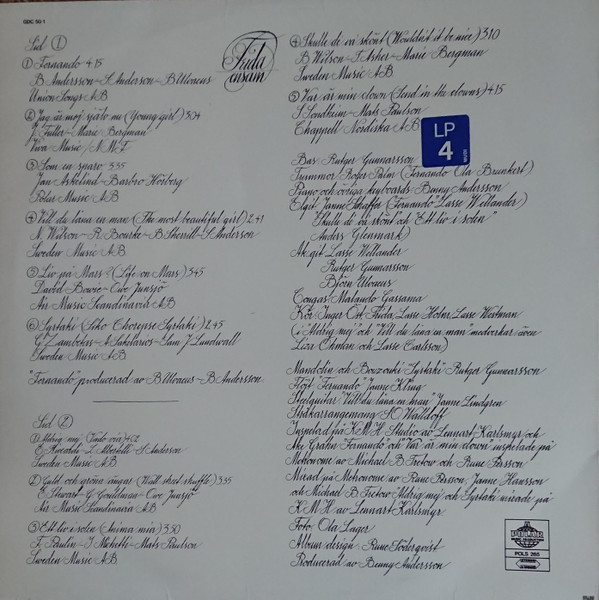 GDC 30:1
Frida
ensam
Sid 1
1 Fernando 4.15
B. Andersson-S. Anderson-B. Ulvaeus
Union Songs AB
2 Jag är mej själv nu (Young girl) 3.04
J. Fuller-Marie Bergman
Viva Music/N.M.F.
3 Som en sparv 3.35
Jan Askelind-Barbro Hörberg
Polar Music AB
4 Vill du låna en man (The most beautiful girl) 2.41
N. Wilson-R. Bourke-B. Sherrill-S. Anderson
Sweden Music AB
5 Liv på Mars? (Life on Mars) 3.45
David Bowie-Owe Junsjö
Air Music Scandinavia AB
6 Syrtaki (Siko Chorepse Syrtaki) 2.45
G. Zambetas-A. Sakelarios-Sam J. Lundwall
Sweden Music AB
"Fernando" producerad av B. Ulvaeus-B. Andersson.
Sid 2
1 Aldrig mej (Vado via) 4.02
E. Riccardi-L. Albertelli-S. Anderson
Sweden Music AB
2 Guld och gröna ängar (Wall street shuffle) 3.35
E. Stewart-G. Gouldman-Owe Junsjö
Air Music Scandinavia AB
3 Ett liv i solen (Anima mia) 3.50
F. Paulin-I. Michetti-Mats Paulson
Sweden Music AB
4 Skulle de va skönt (Wouldn't it be nice) 3.10
B. Wilson-T. Asher-Marie Bergman
Sweden Music AB
5 Var är min clown (Send in the clowns) 4.15
S. Sondheim-Mats Paulson
Chappell Nordiska AB
LP
4
Bas: Rutger Gunnarsson
Trummor: Roger Palm (Fernando: Ola Brunkert)
Piano och övriga keyboards: Benny Andersson
Elgit: Janne Schaffer (Fernando: Lasse Wellander
"Skulle de va skönt" och "Ett liv i solen"
Anders Glenmark)
Ak.git: Lasse Wellander
Rutger Gunnarsson
Björn Ulvaeus
Congas: Malando Gassama
Kör: Inger Öst, Frida, Lasse Holm, Lasse Westman
(i "Aldrig mej" och "Vill du låna en man" medverkar även
Liza Öhman och Lasse Carlsson)
Mandolin och Bouzouki "Syrtaki": Rutger Gunnarsson
Flöjt "Fernando": Janne Kling
Steelguitar "Vill du låna en man": Janne Lindgren
Stråkarrangemang: S-O Walldoff
Inspelad på K.M.H. Studio av Lennart Karlsmyr och
Åke Grahn. "Fernando" och "Var är min clown" inspelade på
Metronome av Michael B. Tretow och Rune Persson
Mixad på Metronome av Rune Persson, Janne Hansson
och Michael B. Tretow. Aldrig mej och Syrtaki mixade på
K.M.H. av Lennart Karlsmyr
Foto: Ola Lager
Album design: Rune Söderqvist
Producerad av Benny Andersson
POLAR
POLS 265